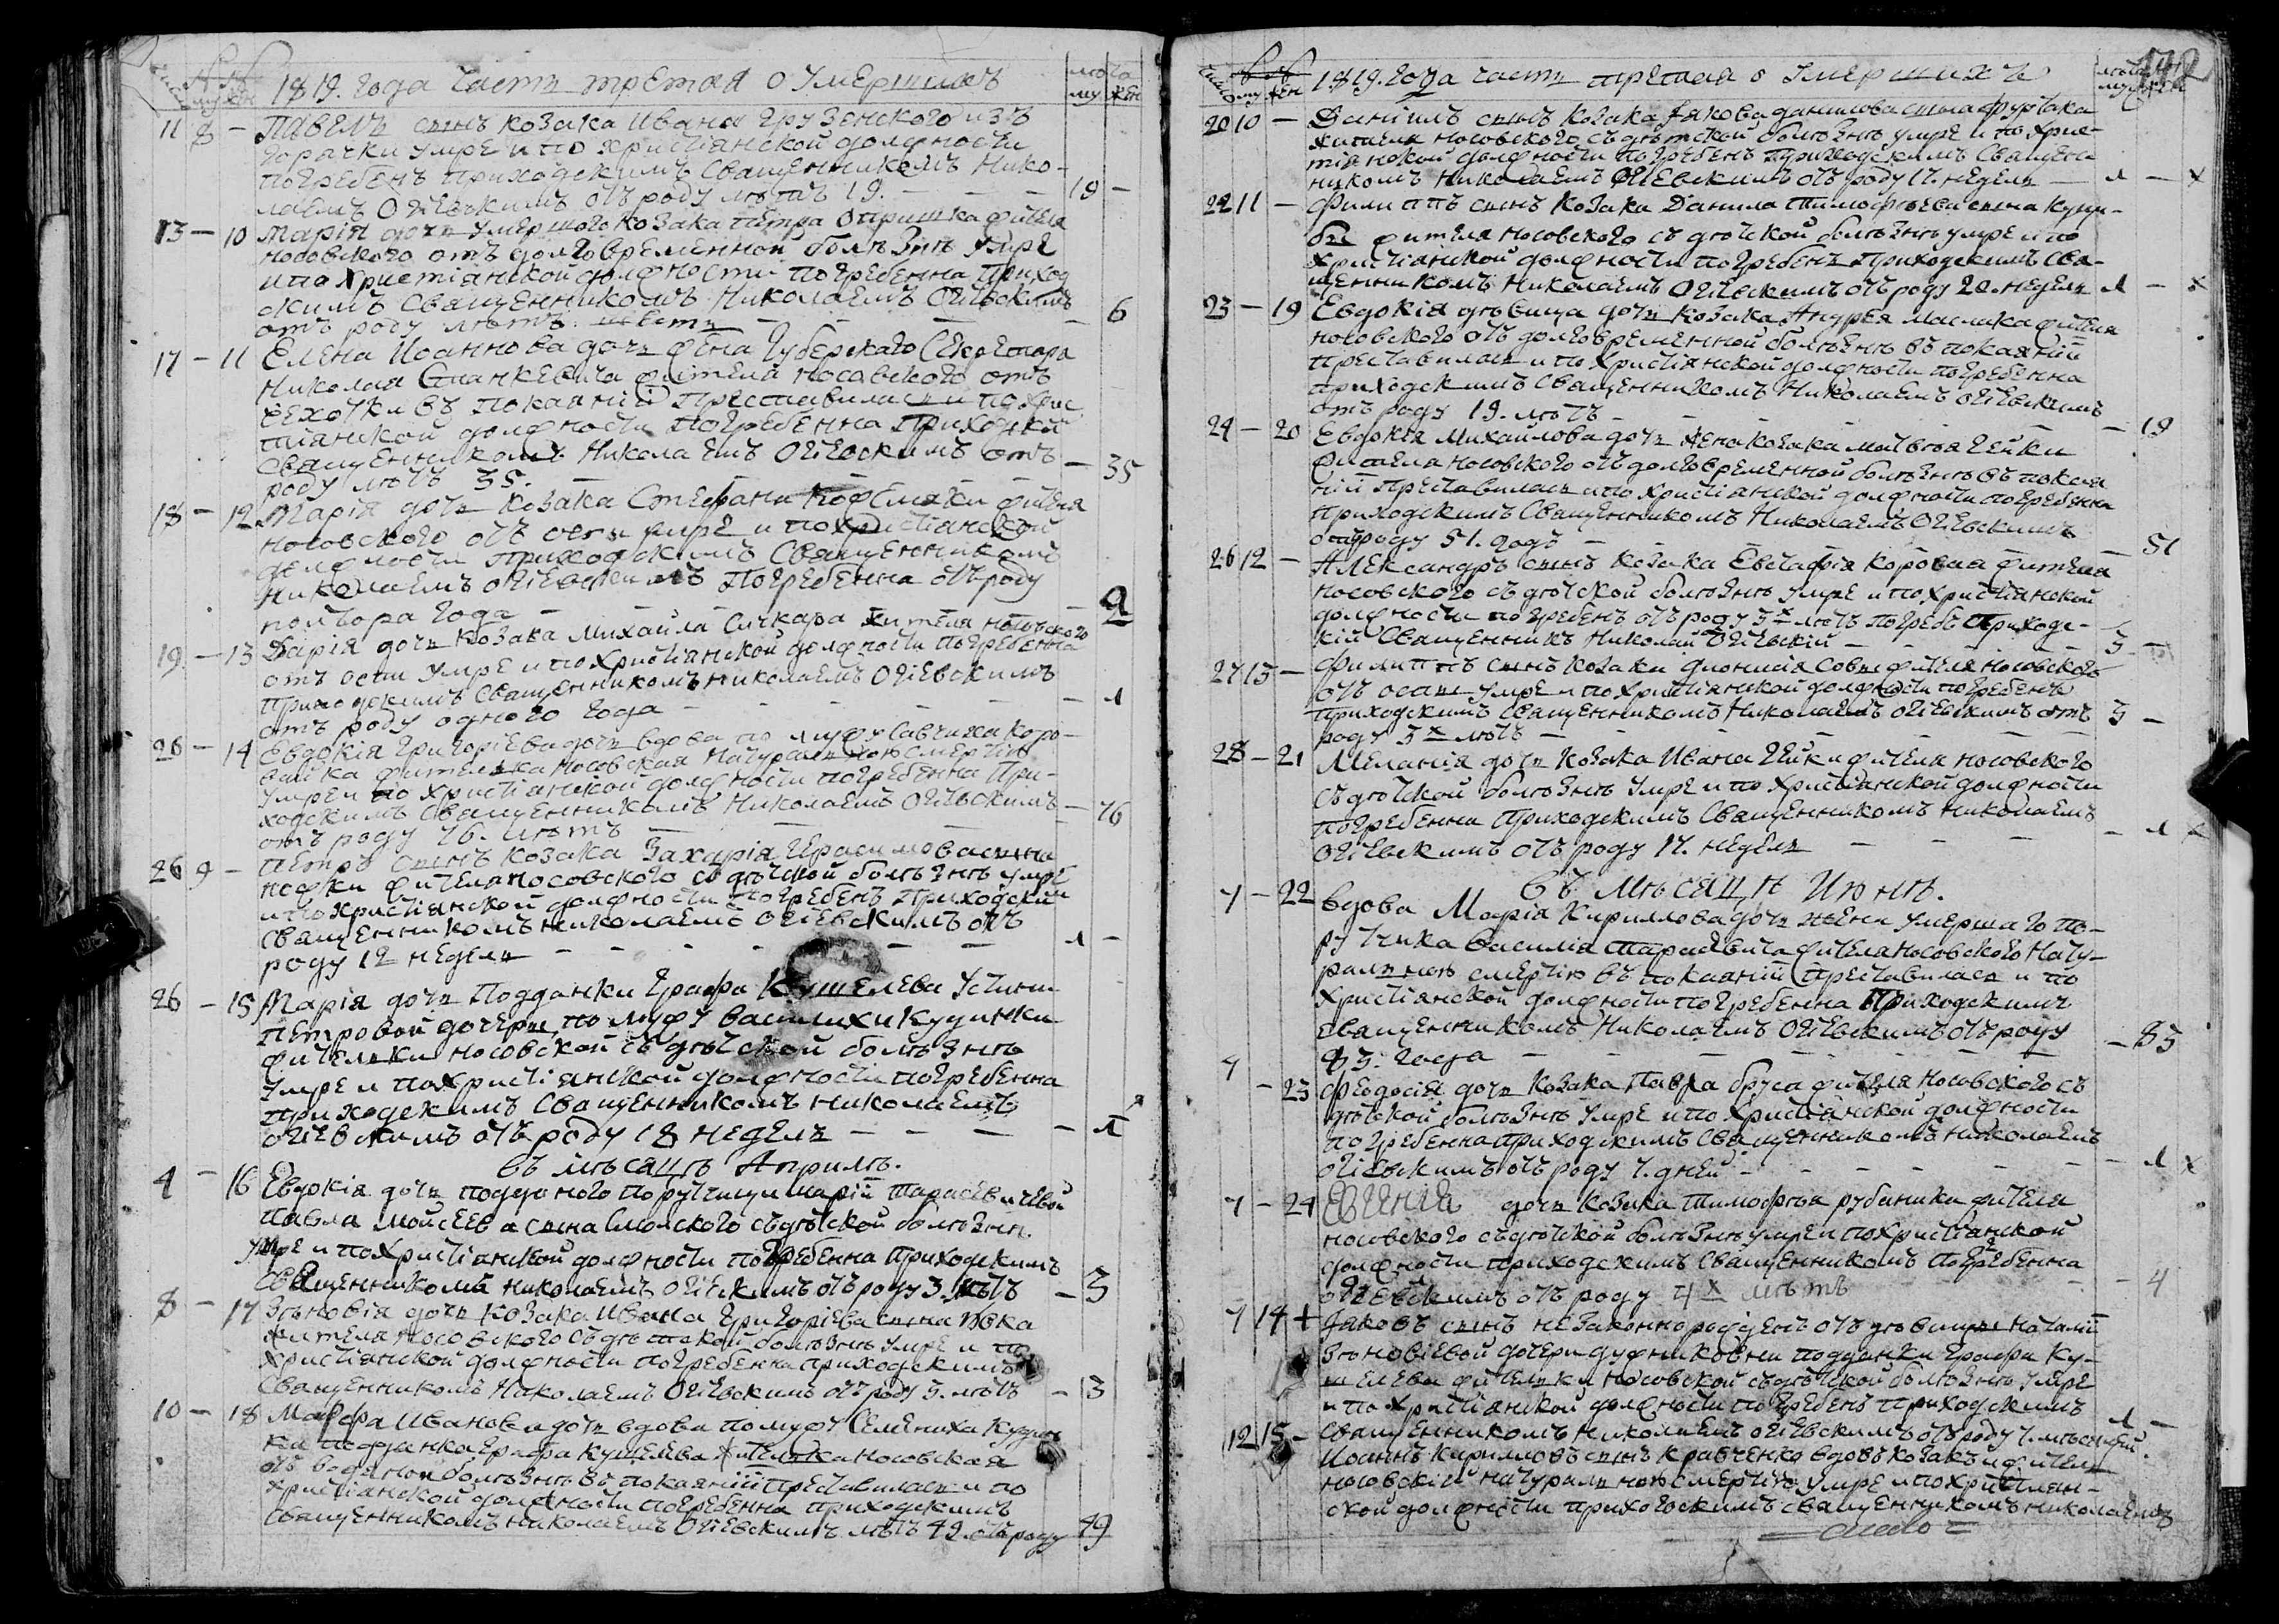 1819. года часть третая о умершихъ
лѣта
му жен
11 8 — Павелъ сынъ козака Ивана Грузенского изъ
горачки умре и по христіанской должности
погребенъ приходскимъ Священникомъ Нико-
лаемъ Огіевскимъ отъ роду лѣтъ 19. — 19 —
13 — 10 Марія дочь умершого козака Петра Опришка жителя
носовского отъ долговременной болѣзнѣ умре
и по христіянской должности погребенна приход
скимъ Священникомъ Николаемъ Огіевскимъ
отъ роду лѣтъ шесть — 6
17 — 11 Елена Иоаннова дочь жена Губерского Секретара
Николая Станкевича жителя носовского отъ
сехотки въ покаяніи преставилась и по хрис
тіянской должности погребенна приходским
Священникомъ Николаемъ Огіевскимъ отъ
роду лѣтъ 35. — 35
18 — 12 Марія дочь козака Стефана Кожемяки жителя
носовского отъ оспы умре и по христіанской
должности приходскимъ Священникомъ
Николаемъ Огіевскимъ погребенна отъ роду
полтора года — 2
19 — 13 Дарія дочь козака Михайла Сичкара жителя носовского
отъ оспи умре и по христіянской должности погребенна
приходскимъ Священникомъ Николаемъ Огіевскимъ
отъ роду одного года — 1
26 — 14 Евдокія Григоріева дочь вдова по мужу Савчиха Коро-
вайка жителька носовская натуральною смертію
умре и по христіянской должности погребенна при-
ходскимъ Священникомъ Николаемъ Огіевскимъ
отъ роду 76. лѣтъ — 76
26 9 — Петръ сынъ козака Захарія Герасимова сына
жителя носовского съ дѣтской болѣзнѣ умре
и по христіянской должности погребенъ приходским
священникомъ Николаемъ Огіевскимъ отъ
роду 12 недель — 1 —
26 — 15 Марія дочь подданки Графа Кушелева Устины
Петровой дочери по мужу Василихи Кудинки
жительки носовской съ дѣтской болѣзнѣ
умре и по христіянской должности погребенна
приходскимъ Священникомъ Николаемъ
Огіевскимъ отъ роду 18 недель — 1
въ мѣсяцѣ Априлѣ.
4 — 16 Евдокія дочь подданого поручици Маріи Тарасевичевой
Павла Мойсеева сына Смолского съ дѣтской болѣзнѣ
умре и по христіянской должности погребенна приходскимъ
Священникомъ Николаемъ Огіевскимъ отъ роду 3. лѣтъ — 3
8 — 17 Зѣновія дочь козака Ивана Григоріева сына
жителя носовского съ дѣтской болѣзнѣ умре и по
христіянской должности погребенна приходскимъ
Священникомъ Николаемъ Огіевскимъ отъ роду 3. лѣтъ — 3
10 — 18 Марфа Иванова дочь вдова по мужу Семениха Кудин
ка подданка Графа Кушелева жителька носовская
отъ водяной болѣзнѣ въ покаяніи преставилась и по
христіянской должности погребенна приходскимъ
Священникомъ Николаемъ Огіевскимъ лѣтъ 49 отъ роду 49
142
1819. года часть третая о умершихъ
лѣта
20 10 — Даніилъ сынъ козака Іакова Данилова сына
жителя носовского съ дѣтской болѣзнѣ умре и по хрис-
тіянской должности погребенъ приходскимъ Священ
никомъ Николаемъ Огіевскимъ отъ роду 17. недель — 1 — х
22 11 — Филиппъ сынъ козака Данила Тимофѣева сына
жителя носовского съ дѣтской болѣзнѣ умре и по
христіянской должности погребенъ приходскимъ Свя-
щенникомъ Николаемъ Огіевскимъ отъ роду 20. недель 1 — х
23 — 19 Евдокія дѣвица дочь козака Андрея Маслака жителя
носовского отъ долговременной болѣзнѣ въ покаяніи
преставилась и по христіянской должности погребенна
приходскимъ Священникомъ Николаемъ Огіевскимъ
отъ роду 19. лѣтъ — 19
24 — 20 Евдокія Михайлова дочь жена козака Матвѣя Гейки
жителя носовского отъ долговременной болѣзнѣ въ покая
ніи преставилась и по христіянской должности погребенна
приходскимъ Священникомъ Николаемъ Огіевскимъ
отъ роду 51. годъ — 51
26 12 — Александръ сынъ козака Евстафія Коровая жителя
носовского съ дѣтской болѣзнѣ умре и по христіянской
должности погребенъ отъ роду 3х лѣтъ погребъ приходс-
кій Священникъ Николай Огіевскій — 3 —
27 13 — Филиппъ сынъ козака Дионисія Совы жителя носовского
отъ оспы умре и по христіянской должности погребенъ
приходскимъ Священникомъ Николаемъ Огіевскимъ отъ
роду 3х лѣтъ — 3 —
28 — 21 Меланія дочь козака Ивана Гейки жителя носовского
съ дѣтской болѣзнѣ умре и по христіянской должности
погребенна приходскимъ Священникомъ Николаемъ
Огіевскимъ отъ роду 17. недель — 1 х
въ мѣсяцѣ Июнѣ.
7 — 22 вдова Марія Кириллова дочь жена умершаго по-
ручика Василія Тарасевича жителя носовского нату-
ральною смертію въ покаяніи преставилась и по
христіянской должности погребенна приходскимъ
священникомъ Николаемъ Огіевскимъ отъ роду
83. года — 83
7 — 23 Феодосія дочь козака Павла Бруса жителя носовского съ
дѣтской болѣзнѣ умре и по христіянской должности
погребенна приходскимъ Священникомъ Николаемъ
Огіевскимъ отъ роду 7. дней — 1 х
7 — 24 Евгенія дочь козака Тимофѣя Рубаника жителя
носовского съ дѣтской болѣзнѣ умре и по христіянской
должности приходскимъ Священникомъ погребенна
Огіевскимъ отъ роду 4х лѣтъ — 4
7 14 + Іаковъ сынъ незаконнорожденъ отъ дѣвицы Наталіи
Зѣновіевой дочери подданки Графа Ку-
шелева жительки носовской съ дѣтской болѣзнѣ умре
и по христіянской должности погребенъ приходскимъ
Священникомъ Николаемъ Огіевскимъ отъ роду 7. мѣсяцей 1 —
12 15 — Иоаннъ Кирилловъ сынъ Кравченко вдовъ козакъ и житель
носовскій натуральною смертію умре и по христіян-
ской должности приходскимъ священникомъ Николаемъ